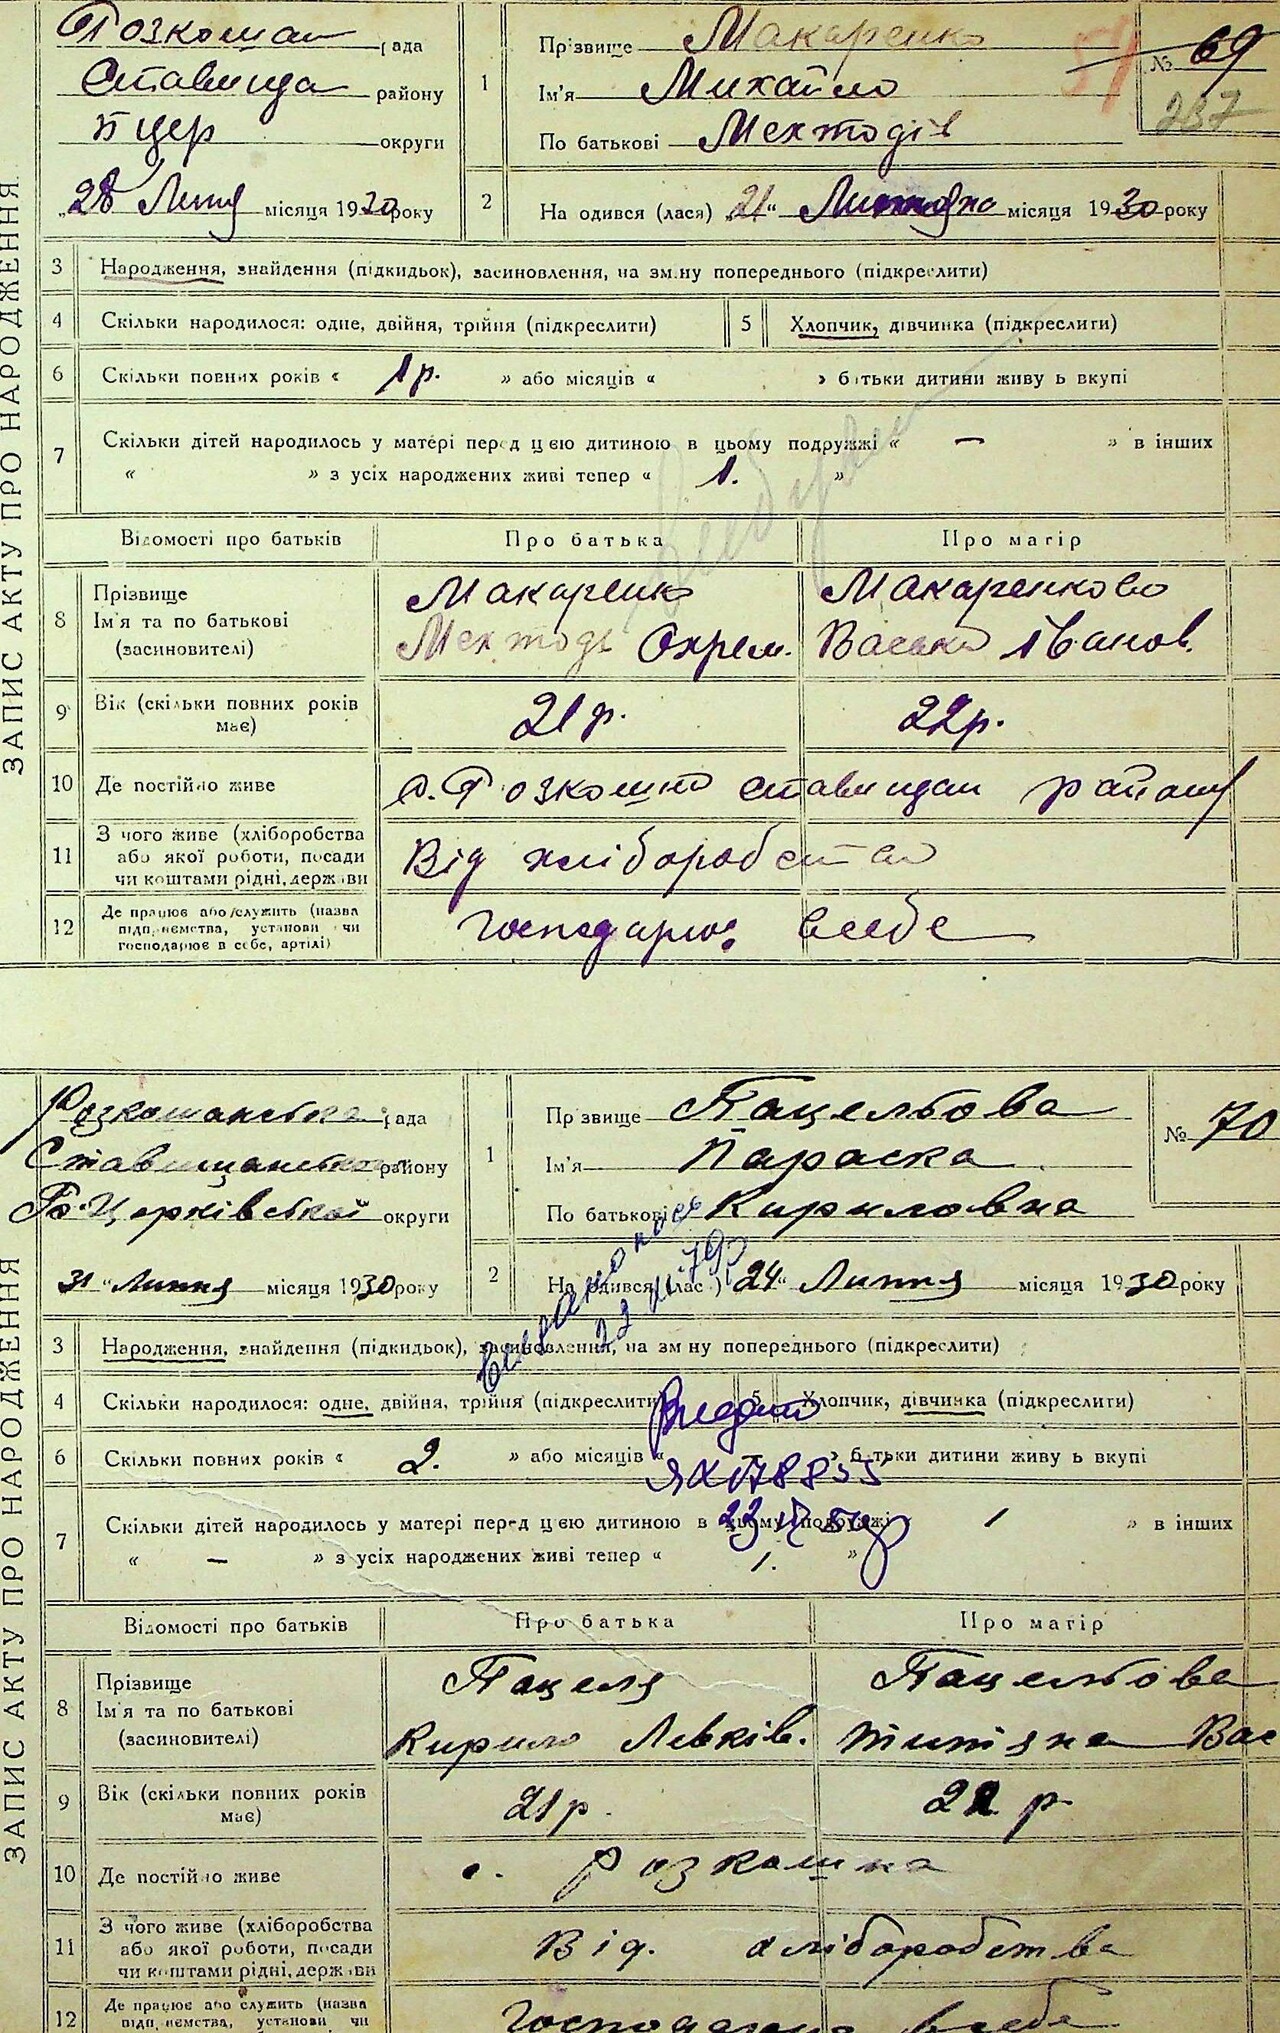 ЗАПИС АКТУ ПРО НАРОДЖЕННЯ
Розкошан рада
Ставища району
Б Цер округи
„28 Липня місяця 1930 року
1
Прізвище Макаренко
Ім'я Михайло
По батькові Мехтодів
№ 69
59
237
2
Народився (лася) „21“ Липня місяця 1930 року
3 Народження, знайдення (підкидьок), засиновлення, на зміну попереднього (підкреслити)
4 Скільки народилося: одне, двійня, трійня (підкреслити) 5 Хлопчик, дівчинка (підкреслити)
6 Скільки повних років « 1 р. » або місяців « » батьки дитини живуть вкупі
7 Скільки дітей народилось у матері перед цією дитиною в цьому подружжі « — » в інших
« » з усіх народжених живі тепер « 1. »
Відомості про батьків Про батька Про матір
8 Прізвище Ім'я та по батькові (засиновителі)
Макаренко Макаренкова
Мехтодь Охрем. Васька Іванов.
9 Вік (скільки повних років має) 21 р. 22 р.
10 Де постійно живе с. Розкошно Ставищан району
11 З чого живе (хліборобства або якої роботи, посади чи коштами рідні, держави Від хліборобства
12 Де працює або служить (назва підприємства, установи чи господарює в себе, артілі) Господарює всебе
ЗАПИС АКТУ ПРО НАРОДЖЕННЯ
Розкошанська рада
Ставищанського району
Б-Церківської округи
31 „ Липня місяця 1930 року
1
Прізвище Пацельова
Ім'я Параска
По батькові Кириловна
№ 70
2
Народився (лася) „24“ Липня місяця 1930 року
3 Народження, знайдення (підкидьок), засиновлення, на зміну попереднього (підкреслити)
4 Скільки народилося: одне, двійня, трійня (підкреслити) 5 Хлопчик, дівчинка (підкреслити)
6 Скільки повних років « 2. » або місяців « » батьки дитини живуть вкупі
7 Скільки дітей народилось у матері перед цією дитиною в цьому подружжі « 1 » в інших
« — » з усіх народжених живі тепер « 1. »
Відомості про батьків Про батька Про матір
8 Прізвище Ім'я та по батькові (засиновителі)
Пацеля Пацельова
Кирило Левків. Титяна Вас
9 Вік (скільки повних років має) 21 р. 22 р.
10 Де постійно живе с. Розкошна
11 З чого живе (хліборобства або якої роботи, посади чи коштами рідні, держави Від. хліборобства
12 Де працює або служить (назва підприємства, установи чи Господарює всебе